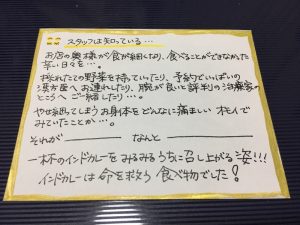 スタッフは知っている…
お店の奥様が食が細くなり、食べることができなかった
辛い日々を…。
採れたての野菜を持っていったり、予約でいっぱいの
漢方医へお連れしたり…、腕が良い評判の治療家の
ところへご一緒したり…。
やせ細ってしまうお身体をどんなに痛ましいオモイで
みていたことか…。
それが――― なんと
一杯のインドカレーをみるみるうちに召し上がる姿!!!
インドカレーは命を救う食べ物でした!